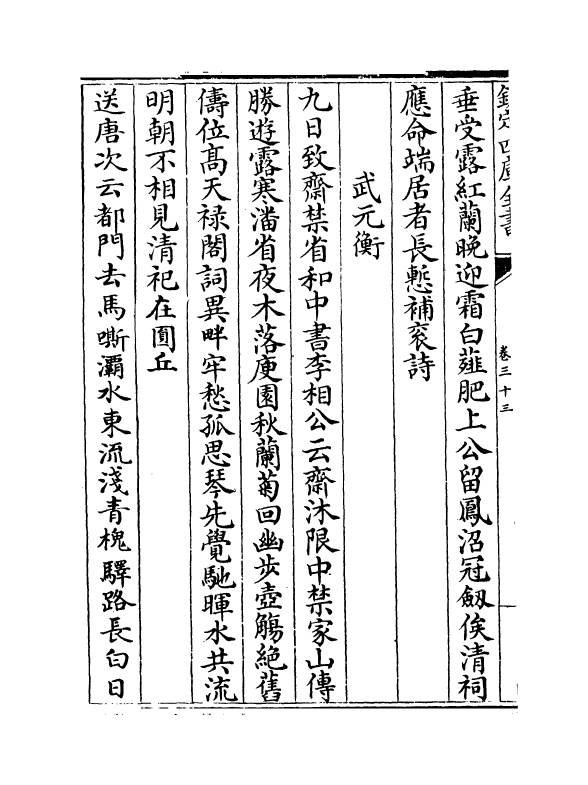 欽定四庫全書
卷三十三
垂受露紅蘭晚迎霜白薤肥上公留鳳沼冠劒俟清祠
應命端居者長慙補衮詩
武元衡
九日致齋禁省和中書李相公云齋沐限中禁家山傳
勝遊露寒潘省夜木落庾園秋蘭菊回幽步壺觴絶舊
儔位髙天禄閣詞異畔牢愁孤思琴先覺馳暉水共流
明朝不相見清祀在圓丘
送唐次云都門去馬嘶灞水東流淺青槐驛路長白日